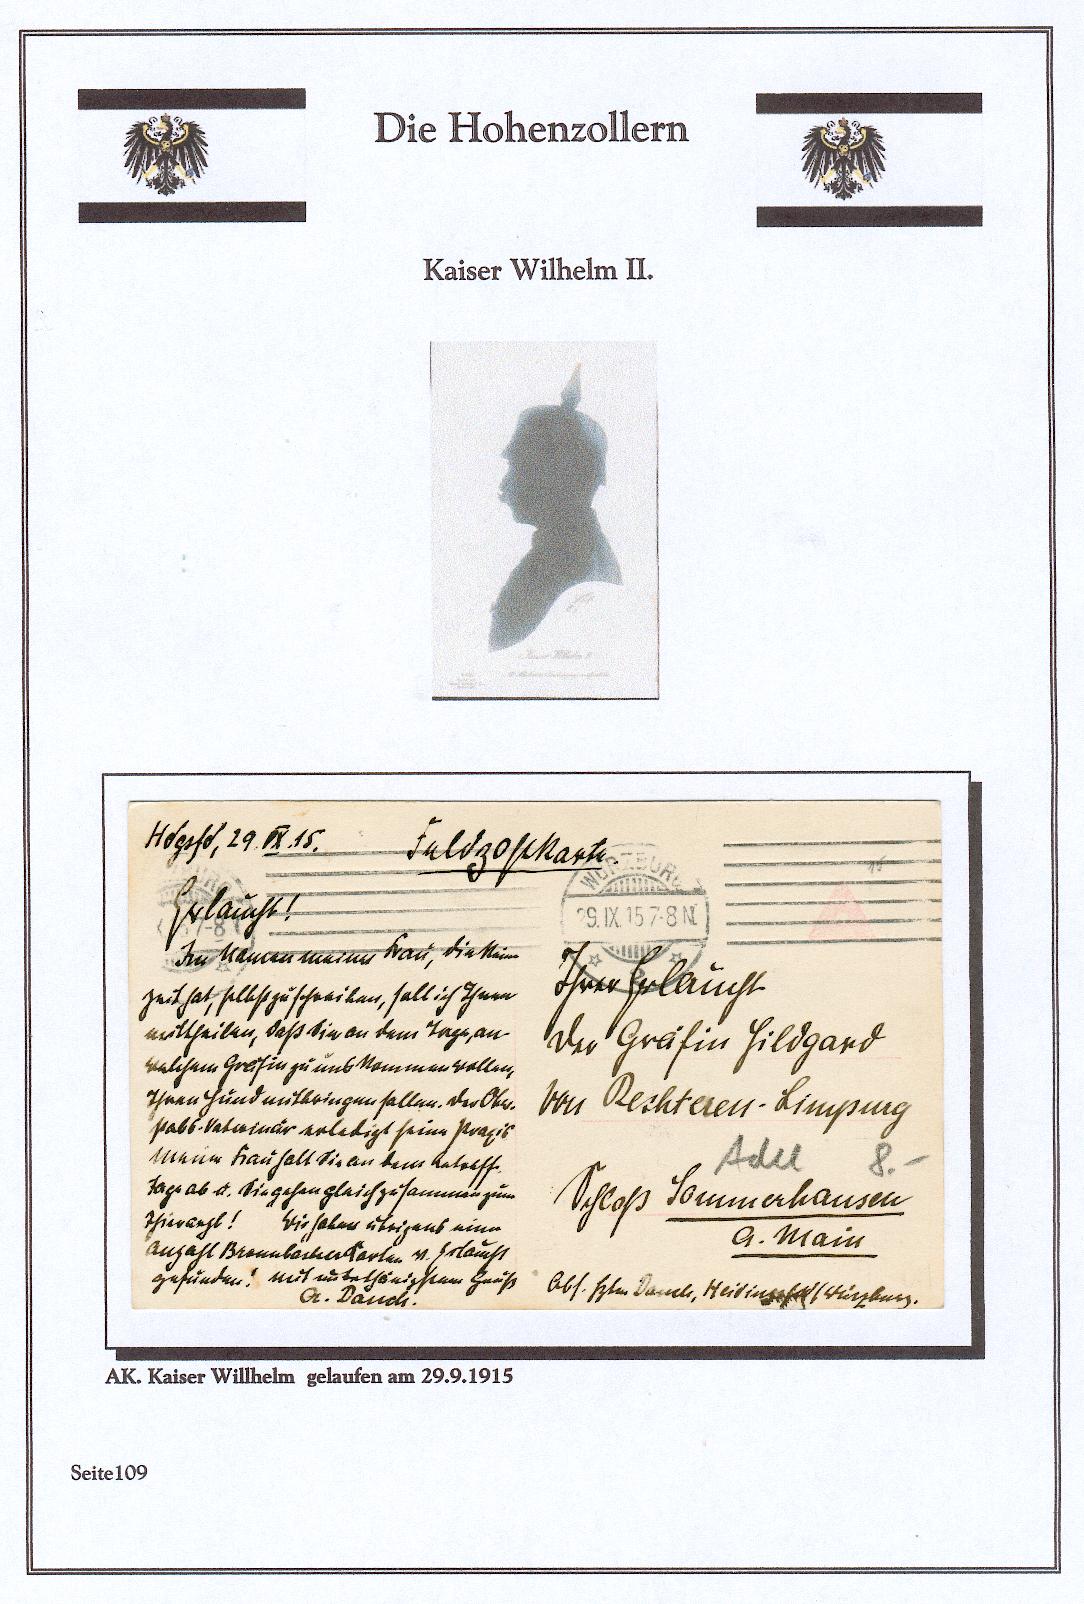 Die Hohenzollern
Kaiser Wilhelm II.
Hdgsfd, 29.IX.15.
Feldpostkarte.
Erlaucht!
Im Namen meiner Frau, die keine
Zeit hat, selbst zu schreiben, soll ich Ihnen
mittheilen, daß Sie an dem Tage, an
welchem Gräfin zu uns kommen wollen,
Ihren Hund mitbringen sollen. Der Ober-
stabs-Veterinär erledigt seine Praxis
Meine Frau holt Sie an dem betreff.
Tage ab u. Sie gehen gleich zusammen zum
Thierarzt! Wir haben übrigens eine
Anzahl Karten v. Erlaucht
gefunden! Mit unterthänigstem Gruß
WÜRZBURG
29.IX.15 7-8 N.
Ihrer Erlaucht
der Gräfin Hildgard
von Rechteren-Limpurg
Adel 8.-
Schloß Sommerhausen
a. Main
Abs. Würzburg.
AK. Kaiser Willhelm gelaufen am 29.9.1915
Seite109